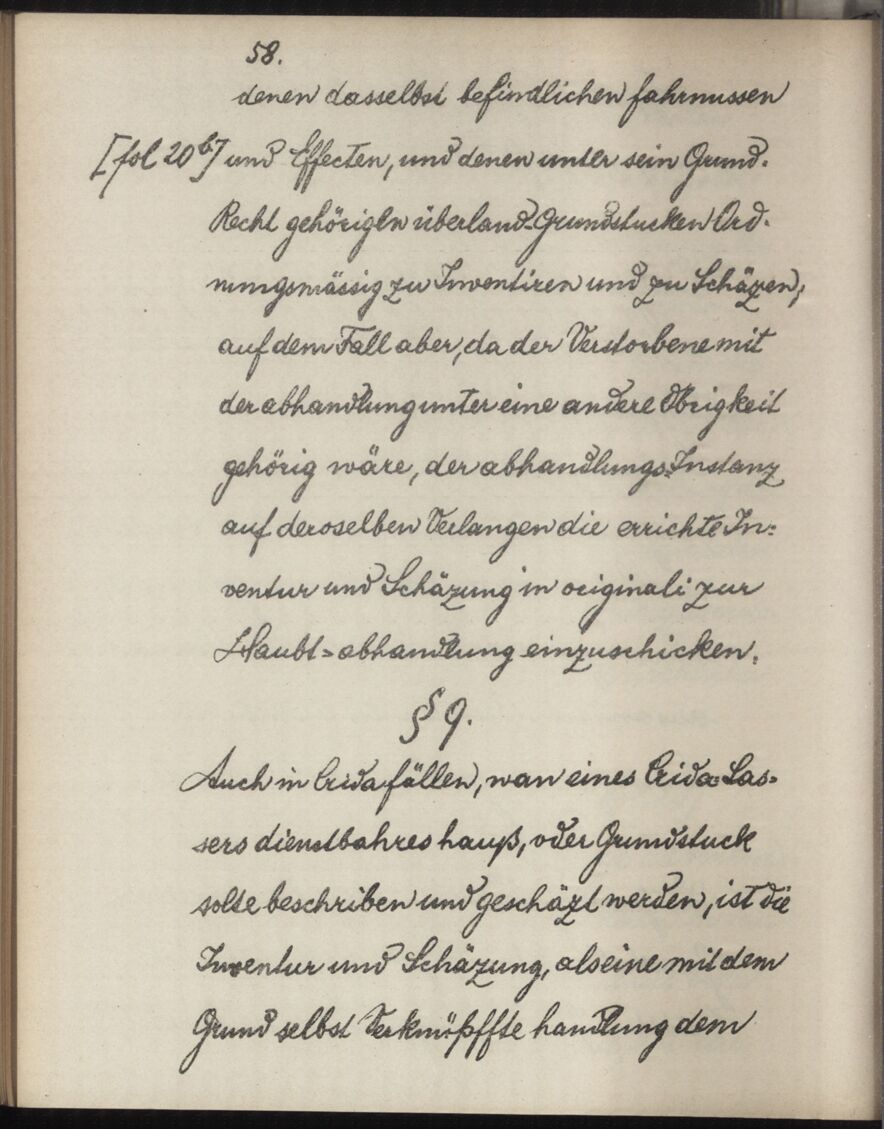 58.
denen dasselbst befindlichen fahrnussen
[fol 20b] und Effecten, und denen unter sein Grund-
Recht gehörigen überland-Grundstucken Ord-
nungsmässig zu Inventiren und zu Schäzen,
auf dem Fall aber, da der Verstorbene mit
der abhandlung unter eine andere Obrigkeit
gehörig wäre, der abhandlungs-Instanz
auf deroselben Verlangen die errichte In-
ventur und Schäzung in originali zur
Haubt-abhandlung einzuschicken.
§ 9.
Auch in Cridafällen, wan eines Crida-Las-
sers dienstbahres hauß, oder Grundstuck
solte beschriben und geschäzt werden, ist die
Inventur und Schäzung, als eine mit dem
Grund selbst Verknüpffte handlung dem